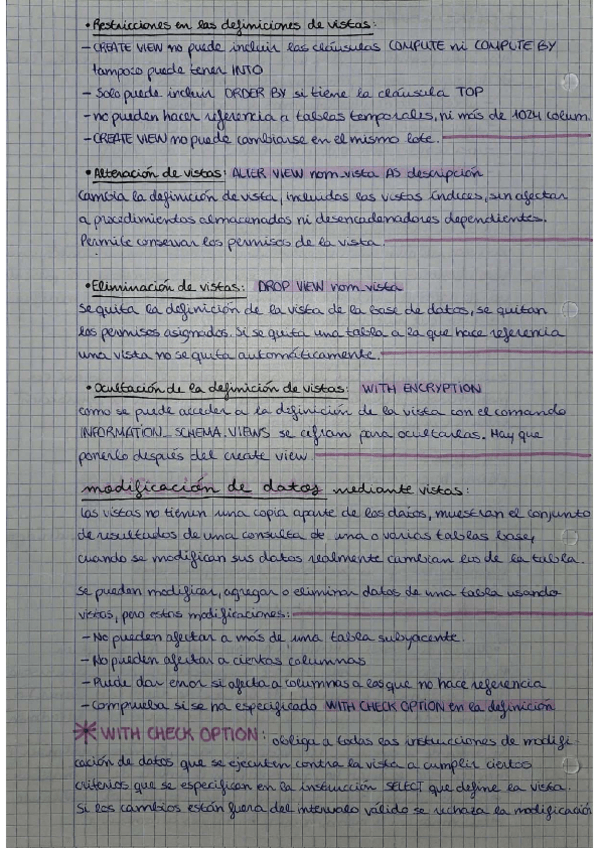 • Restricciones en las definiciones de vistas:
- CREATE VIEW no puede incluir las cláusulas COMPUTE ni COMPUTE BY
tampoco puede tener INTO
- Solo puede incluir ORDER BY si tiene la cláusula TOP
- no pueden hacer referencia a tablas temporales, ni más de 1024 colum.
- CREATE VIEW no puede cambiarse en el mismo lote.
• Alteración de vistas: ALTER VIEW nom_vista AS descripción
Cambia la definición de vista, incluidas las vistas índices, sin afectar
a procedimientos almacenados ni desencadenadores dependientes.
Permite conservar los permisos de la vista.
• Eliminación de vistas: DROP VIEW nom_vista
se quita la definición de la vista de la base de datos, se quitan
los permisos asignados. Si se quita una tabla a la que hace referencia
una vista no se quita automáticamente.
• Ocultación de la definición de vistas: WITH ENCRYPTION
como se puede acceder a la definición de la vista con el comando
INFORMATION_SCHEMA.VIEWS se cifran para ocultarlas. Hay que
ponerlo después del create view.
modificación de datos mediante vistas:
las vistas no tienen una copia aparte de los datos, muestran el conjunto
de resultados de una consulta de una o varias tablas base,
cuando se modifican sus datos realmente cambian los de la tabla.
se pueden modificar, agregar o eliminar datos de una tabla usando
vistas, pero estas modificaciones:
- No pueden afectar a más de una tabla subyacente.
- No pueden afectar a ciertas columnas
- Puede dar error si afecta a columnas a las que no hace referencia
- Comprueba si se ha especificado WITH CHECK OPTION en la definición
* WITH CHECK OPTION: obliga a todas las instrucciones de modifi-
cación de datos que se ejecuten contra la vista a cumplir ciertos
criterios que se especifican en la instrucción SELECT que define la vista.
Si los cambios están fuera del intervalo válido se rechaza la modificación